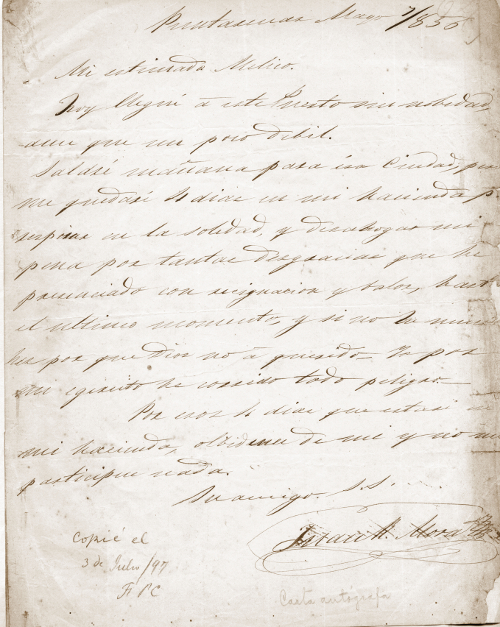 Puntarenas Mayo 7/856
Mi estimada Melico.
Hoy llegué á este Puerto sin novedad,
aun que un poco debil.
Saldré mañana para ésa Ciudad, pero
me quedaré 4 dias en mi hacienda p
respirar en la soledad, y desahogar mi
pena por tantas desgracias que he
presenciado con resignacion y valor, hast
el ultimo momento, y si no he muer
ha por que Dios no á querido. Yo por
mi egercito he corrido todo peligro.
Por esos 4 dias que estaré en
mi hacienda, olvidense de mi y no me
participen nada.
Su amigo S.S.
Mora
Copié el
3 de Julio/97
F P C
Carta autógrafa